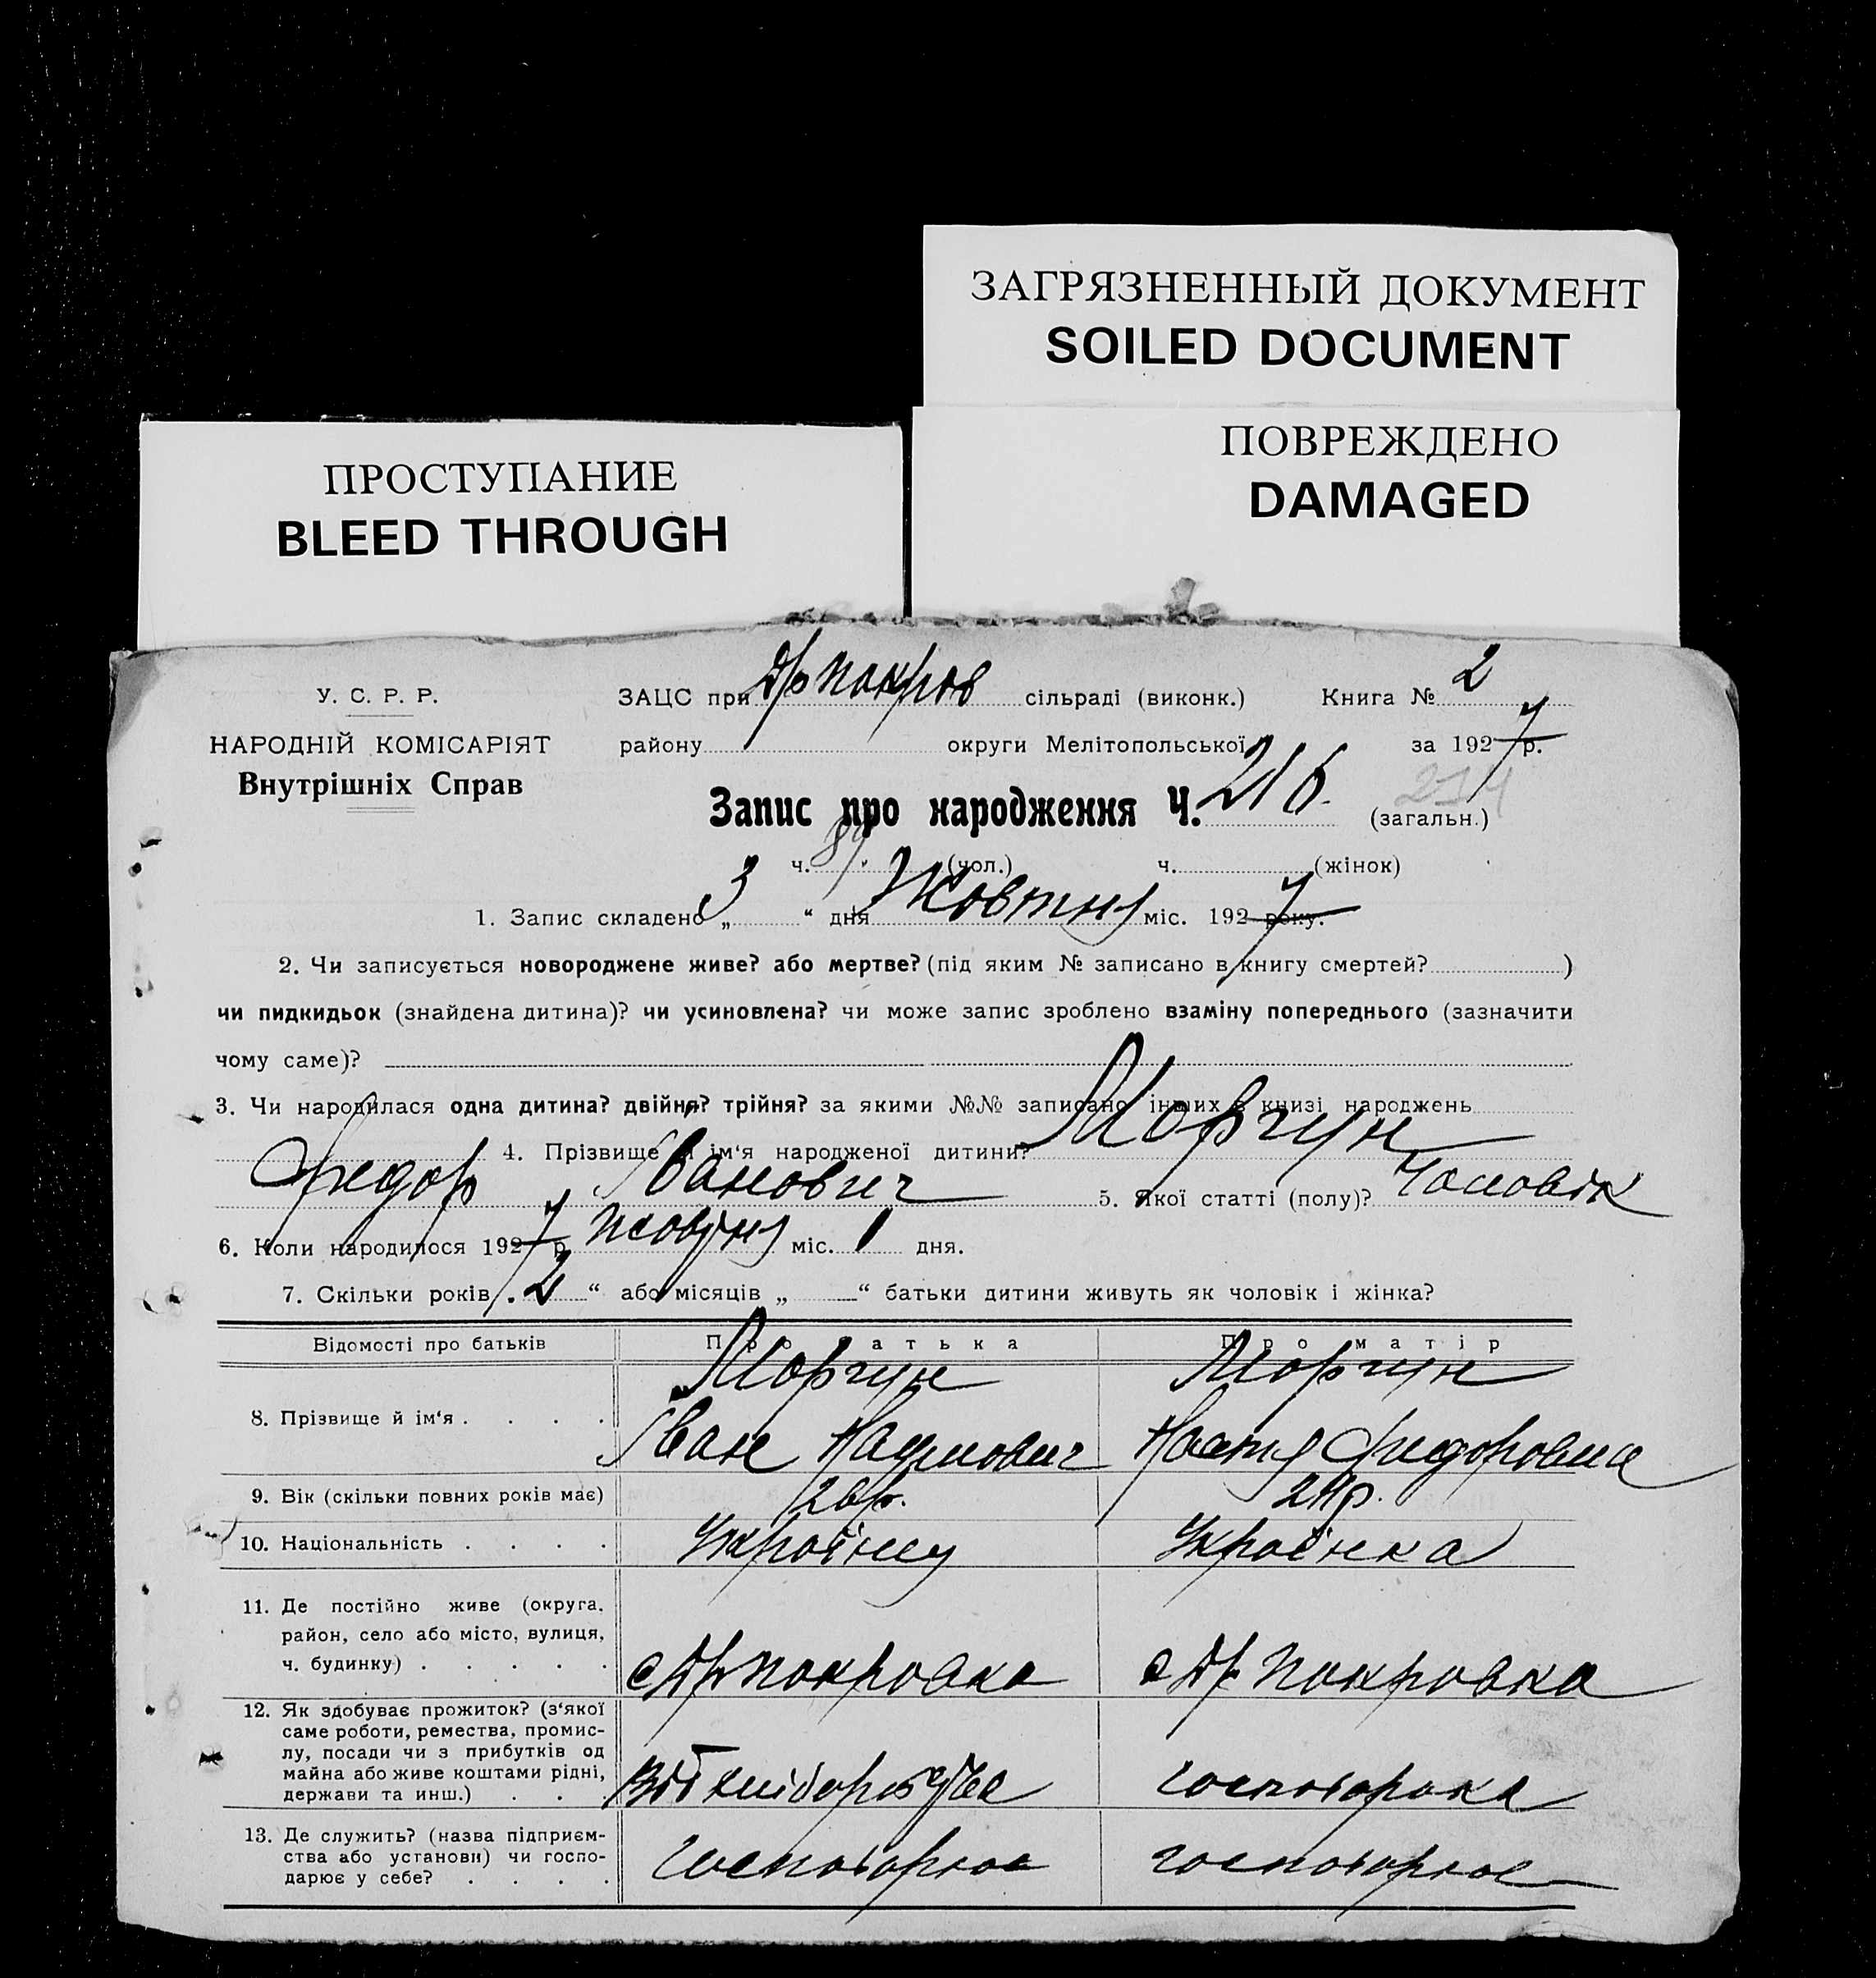 ЗАГРЯЗНЕННЫЙ ДОКУМЕНТ
SOILED DOCUMENT
ПОВРЕЖДЕНО
DAMAGED
ПРОСТУПАНИЕ
BLEED THROUGH
У. С. Р. Р.
НАРОДНІЙ КОМІСАРІЯТ
Внутрішніх Справ
ЗАЦС при Др покров сільраді (виконк.) Книга № 2
району округи Мелітопольської за 1927 р.
Запис про народження Ч. 216 (загальн.) 214
ч. 89 (чол.) ч. (жінок)
1. Запис складено „ 3 “ дня Жовтня міс. 1927 року.
2. Чи записується новороджене живе? або мертве? (під яким № записано в книгу смертей? )
чи пидкидьок (знайдена дитина)? чи усиновлена? чи може запис зроблено взаміну попереднього (зазначити
чому саме)?
3. Чи народилася одна дитина? двійня? трійня? за якими №№ записано інших в книзі народжень
4. Прізвище й ім‘я народженої дитини? Моргун
Федор Іванович 5. Якої статті (полу)? Чоловік
6. Коли народилося 1927 р. жовтня міс. 1 дня.
7. Скільки років „ 2 “ або місяців „ “ батьки дитини живуть як чоловік і жінка?
Відомості про батьків Про батька Про матір
8. Прізвище й ім‘я . . . . Моргун Іван Наумович Моргун Настя Федоровна
9. Вік (скільки повних років має) 26 р. 24 р.
10. Національність . . . . Українец Українка
11. Де постійно живе (округа,
район, село або місто, вулиця,
ч. будинку) . . . . . с Др покровка с Др покровка
12. Як здобуває прожиток? (з‘якої
саме роботи, ремества, промис-
лу, посади чи з прибутків од
майна або живе коштами рідні,
держави та инш.) . . . господарка
13. Де служить? (назва підприєм-
ства або установи) чи госпо-
дарює у себе? . . . . господарює господарює